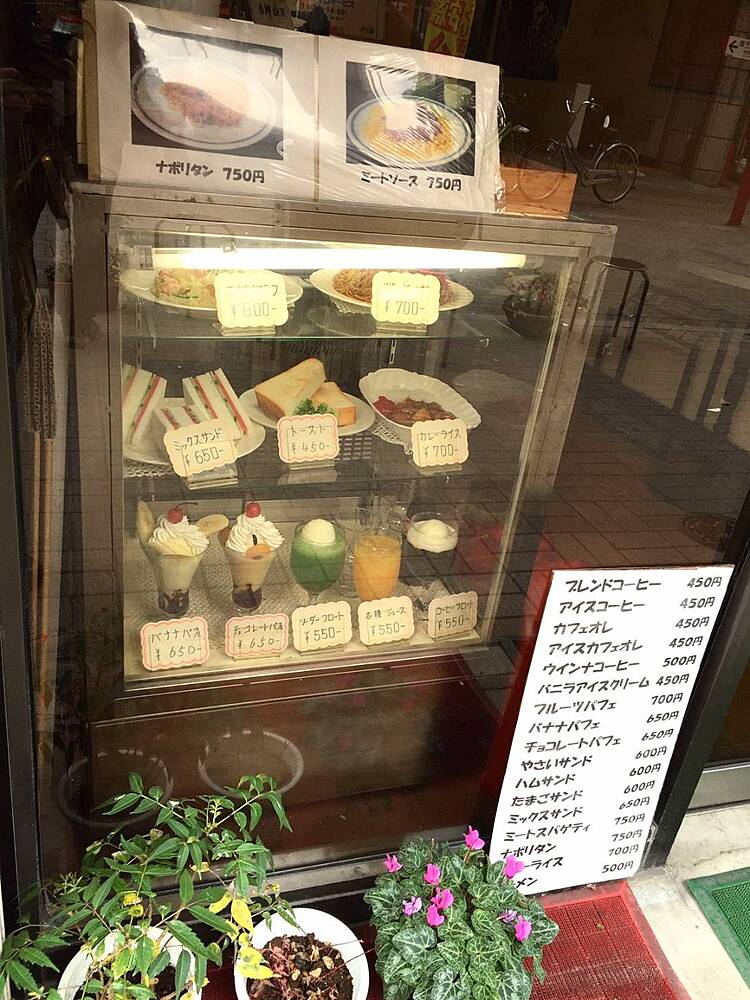 ナポリタン 750円
ミートソース 750円
¥800-
¥700-
ミックスサンド
¥650-
トースト
¥450-
カレーライス
¥700-
バナナパフェ
¥650-
チョコレートパフェ
¥650-
ソーダーフロート
¥550-
各種ジュース
¥550-
コーヒーフロート
¥550-
ブレンドコーヒー 450円
アイスコーヒー 450円
カフェオレ 450円
アイスカフェオレ 450円
ウインナコーヒー 500円
バニラアイスクリーム 450円
フルーツパフェ 700円
バナナパフェ 650円
チョコレートパフェ 650円
やさいサンド 600円
ハムサンド 600円
たまごサンド 600円
ミックスサンド 650円
ミートスパゲティ 750円
ナポリタン 750円
ーライス 700円
メン 500円